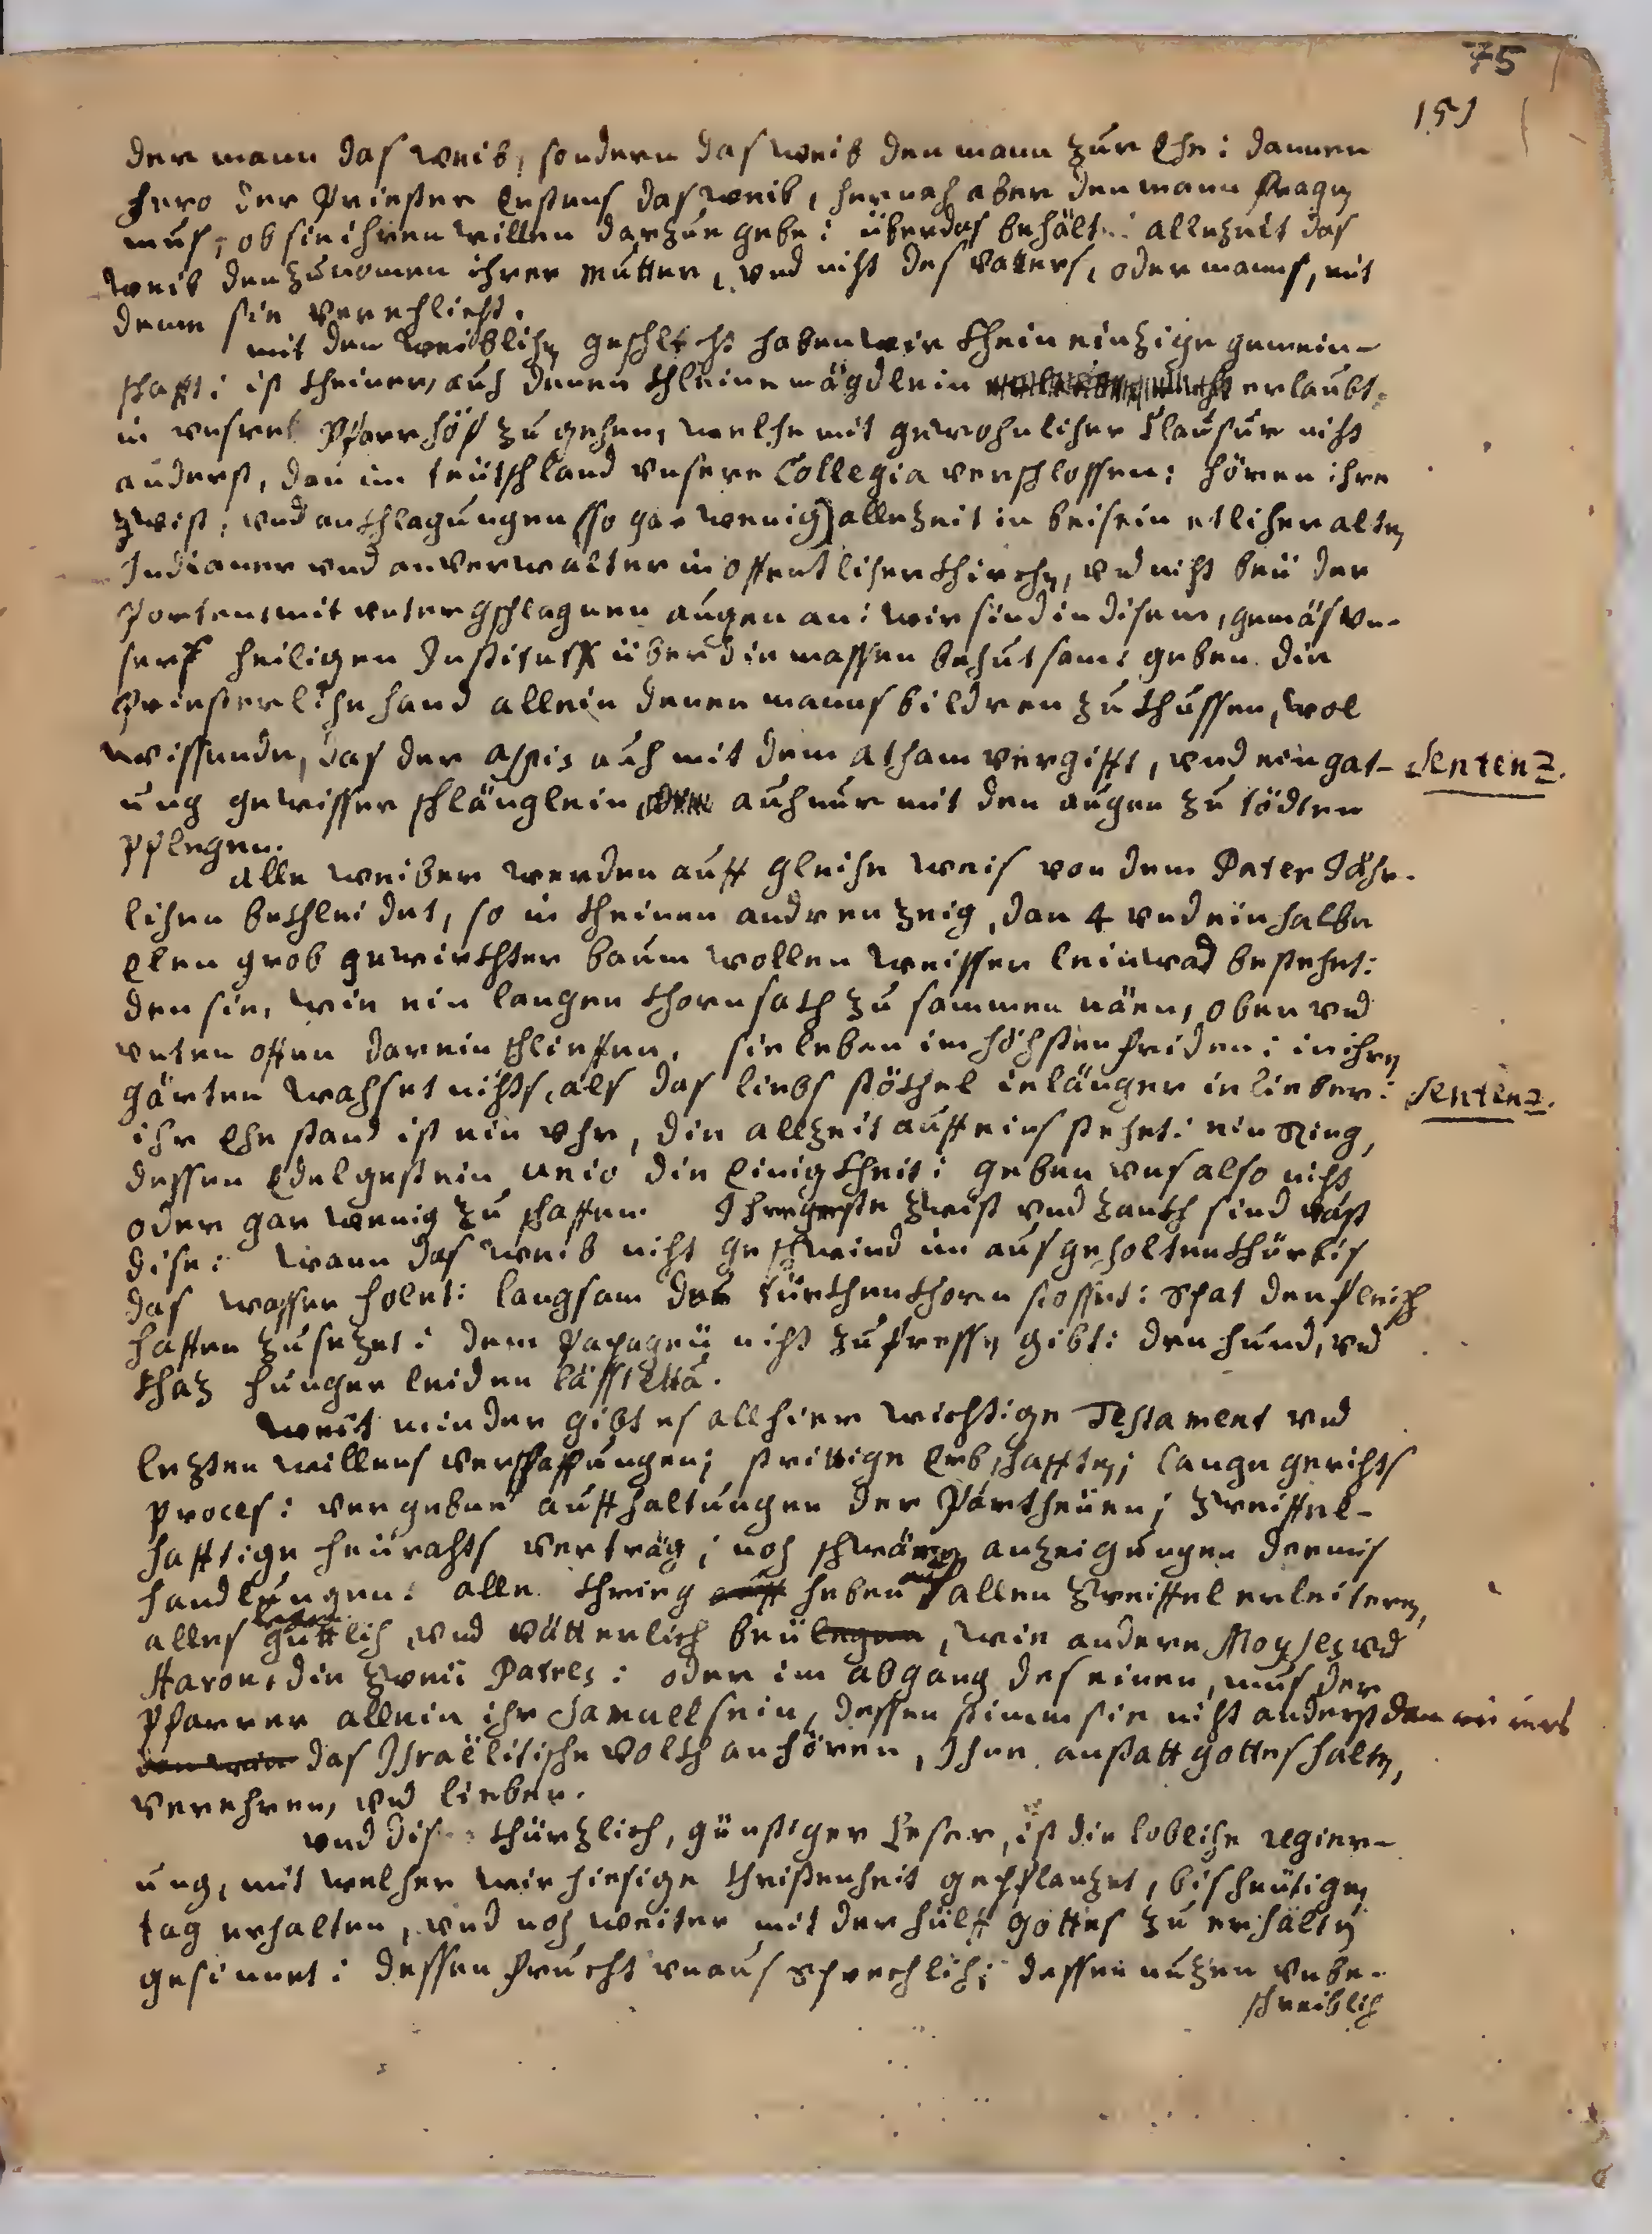 75
151
der mann das weib, sondern das weib den mann zur Ehe: dannen
hero der Priester Erstens das weib, hernach aber den mann fragen
mus, ob sie ihren willen darzue gebe: überdas behält allezeit das
weib den zunomen ihrer Mutter, vnd nicht des vatters, oder manns, mit
deme sie verehlicht.
mit den weiblichen geschlecht haben wir khein einzige gemein-
schafft: ist kheiner, auch denen khleine mägdlein erlaubt:
in vnsere Pfarrhöf zu gehen, welche mit gewohnlicher Clausur nicht
anderst, dan im teütschland vnsere Collegia verschlossen: hören ihre
zwist, vnd ankhlagungen (so gar wenig) allezeit in beisein etlicher alten
Indianer vnd anverwalter in offentlicher khirchen, vnd nicht beü der
Porten, mit vntergschlagnen augen an: wir sind in disem, gemäs vn-
sers heiligen Instituts über die massen behutsam: geben die
Priesterliche hand allein denen mannsbildren zu khussen, wol
wissende, das der Aspis auch mit dem atham vergifft, vnd ein gat-
Sentenz.
ung gewisser schlänglein auch nur mit den augen zu tödten
pflegen.
Alle weiber werden auff gleiche weis von dem Pater Jähr-
lichen bekhleidet, so in kheinen andren zeig, dan 4 vnd ein halbe
Elen grob gewirkhter baumwollen weissen leinwad bestehet:
den sie, wie ein langen khornsakh zusammen näen, oben vnd
vnten offen darein schlieffen. sie leben im höchsten friden: in ihren
gärten wachset nichts, als das liebs stökhel ie länger ie lieber:
Sentenz.
ihr Ehestand ist ein vhr, die allzeit auff eins stehet: ein Ring,
dessen Edelgestein vnio die Einigkheit: geben vns also nicht
oder gar wenig zu schaffen. Ihre greste zwist vnd zankh sind väst
dise: wann das weib nicht geschwind im ausgeholten khürbis
das wasser holet: langsam den türkhenkhorn stosset: Spat den fleisch
haffen zusezet: dem Papageü nicht zu fressen gibt: den hund, vnd
khaz hunger leiden lässt etta.
Weit minder gibt es allhier wichtige Testament vnd
lezten willens verschaffungen; strittige Erbschafften; lange gerichts
proces: vergebne auffhaltungen der Partheüen; zweiffel-
hafftige heürahts verträg; noch schwären anzeigungen der mis
handlungen: alle khrieg heben auf allen zweiffel erleitern,
alles güttlich vnd vätterlich beülegen, wie andere Moyses vnd
Aaron, die zweü Patres: oder im abgang des einen, mus der
Pfarrer allein ihr Samuel sein, dessen stimm sie nicht anderst dan wie iens
das Israëlitische volkh anhören, Ihne anstatt gottes halten,
verehren, vnd lieben.
vnd dise khürzlich, günstiger Leser, ist die lobliche regier-
ung, mit welcher wir hiesige khristenheit gepflanzet, bis heütigen
tag erhalten, vnd noch weiter mit der hülff Gottes zu erhalten
gesinnet: dessen frucht vnaussprechlich: dessen nuzen vnbe-
schreiblich